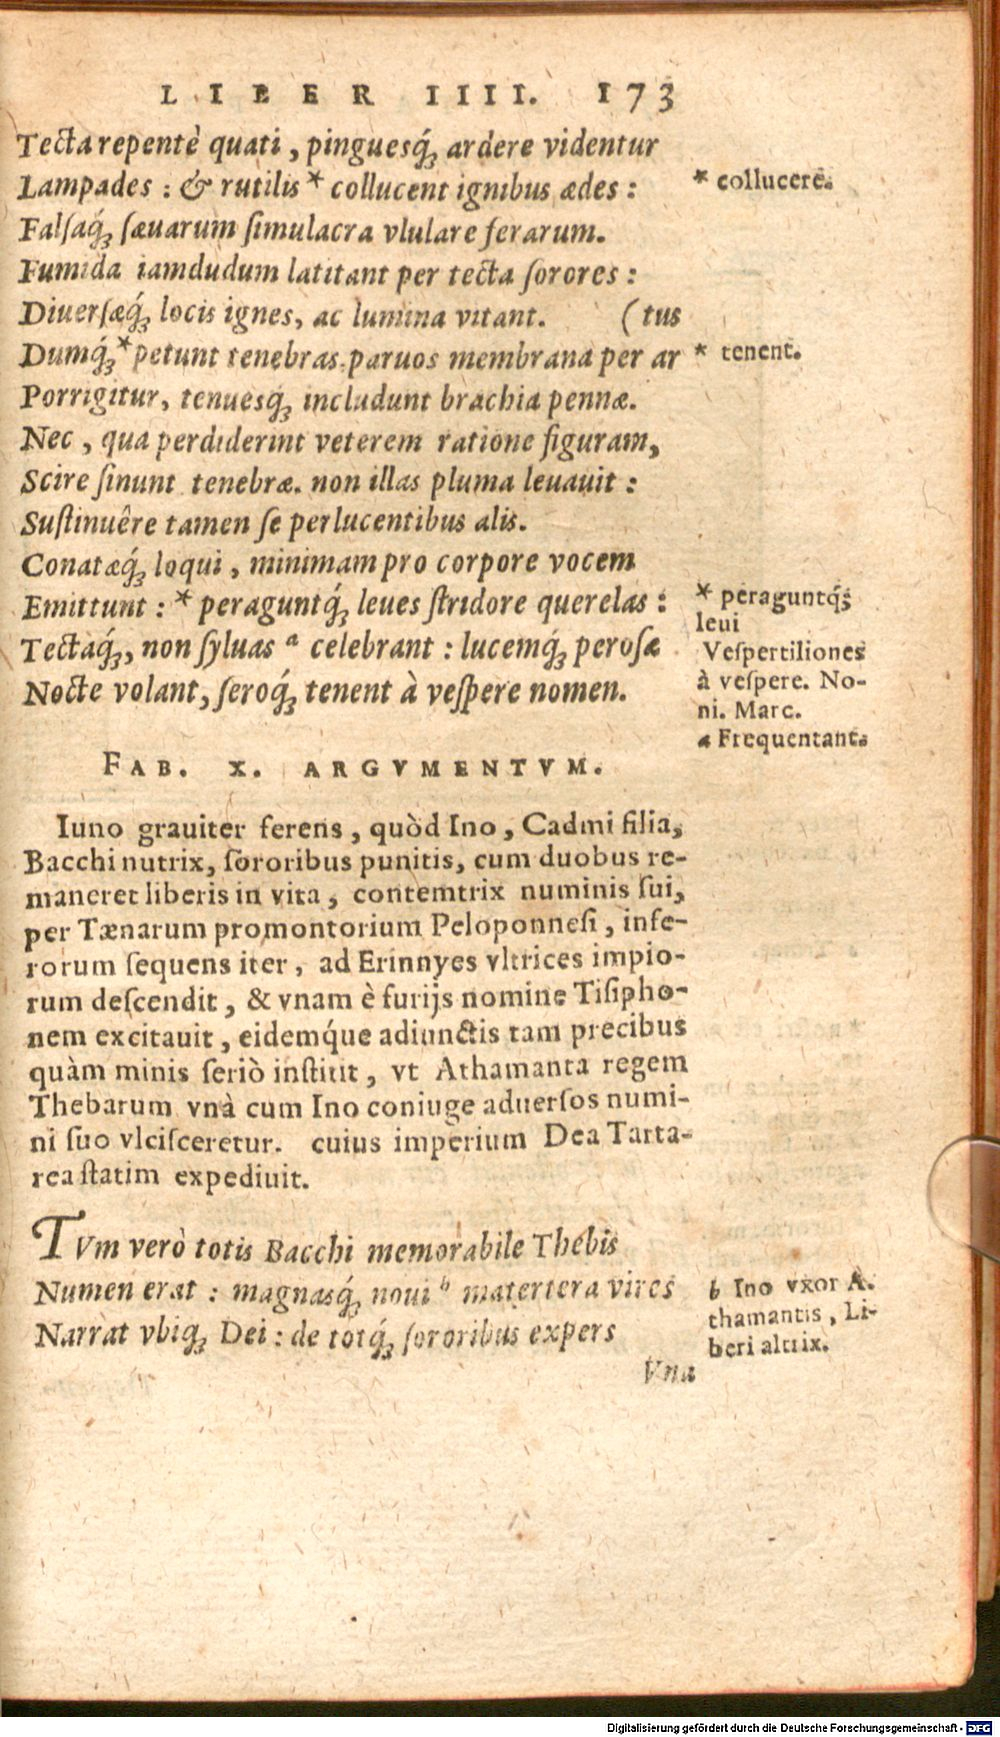 LIBER IIII. 173
Tecta repentè quati, pinguesq́; ardere videntur
Lampades: & rutilis * collucent ignibus ædes:
* collucere.
Falsaq́; sæuarum simulacra vlulare ferarum.
Fumida iamdudum latitant per tecta sorores:
Diuersæq́; locis ignes, ac lumina vitant. (tus
Dumq́; * petunt tenebras, paruos membrana per ar
* tenent.
Porrigitur, tenuesq́; includunt brachia pennæ.
Nec, qua perdiderint veterem ratione figuram,
Scire sinunt tenebræ. non illas pluma leuauit:
Sustinuêre tamen se perlucentibus alis.
Conatæq́; loqui, minimam pro corpore vocem
Emittunt: * peraguntq́; leues stridore querelas:
Tectaq́;, non syluas a celebrant: lucemq́; perosæ
Nocte volant, seroq́; tenent à vespere nomen.
* peraguntq́;
leui
Vespertiliones
à vespere. No-
ni. Marc.
a Frequentant.
FAB. X. ARGVMENTVM.
Iuno grauiter ferens, quòd Ino, Cadmi filia,
Bacchi nutrix, sororibus punitis, cum duobus re-
maneret liberis in vita, contemtrix numinis sui,
per Tænarum promontorium Peloponnesi, infe-
rorum sequens iter, ad Erinnyes vltrices impio-
rum descendit, & vnam è furijs nomine Tisipho-
nem excitauit, eidemq́ue adiunctis tam precibus
quàm minis seriò institit, vt Athamanta regem
Thebarum vnà cum Ino coniuge aduersos numi-
ni suo vlcisceretur. cuius imperium Dea Tarta-
rea statim expediuit.
TVm verò totis Bacchi memorabile Thebis
Numen erat: magnasq́; noui b matertera vires
Narrat vbiq; Dei: de totq́; sororibus expers
b Ino vxor A-
thamantis, Li-
beri altrix.
Vna
Digitalisierung gefördert durch die Deutsche Forschungsgemeinschaft - DFG